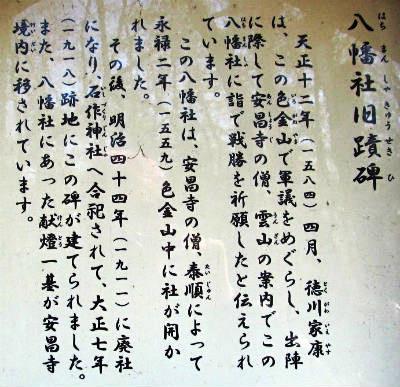 八幡社旧蹟碑
はちまんしゃきゅうせきひ
天正十二年（一五八四）四月、徳川家康
は、この色金山で軍議をめぐらし、出陣
に際して安昌寺の僧、雲山の案内でこの
八幡社に詣で戦勝を祈願したと伝えられ
ています。
この八幡社は、安昌寺の僧、泰順によって
永禄二年（一五五九）色金山中に社が開か
れました。
その後、明治四十四年（一九一一）に廃社
になり、石作神社へ合祀されて、大正七年
（一九一八）跡地にこの碑が建てられました。
また、八幡社にあった献燈一基が安昌寺
境内に移されています。